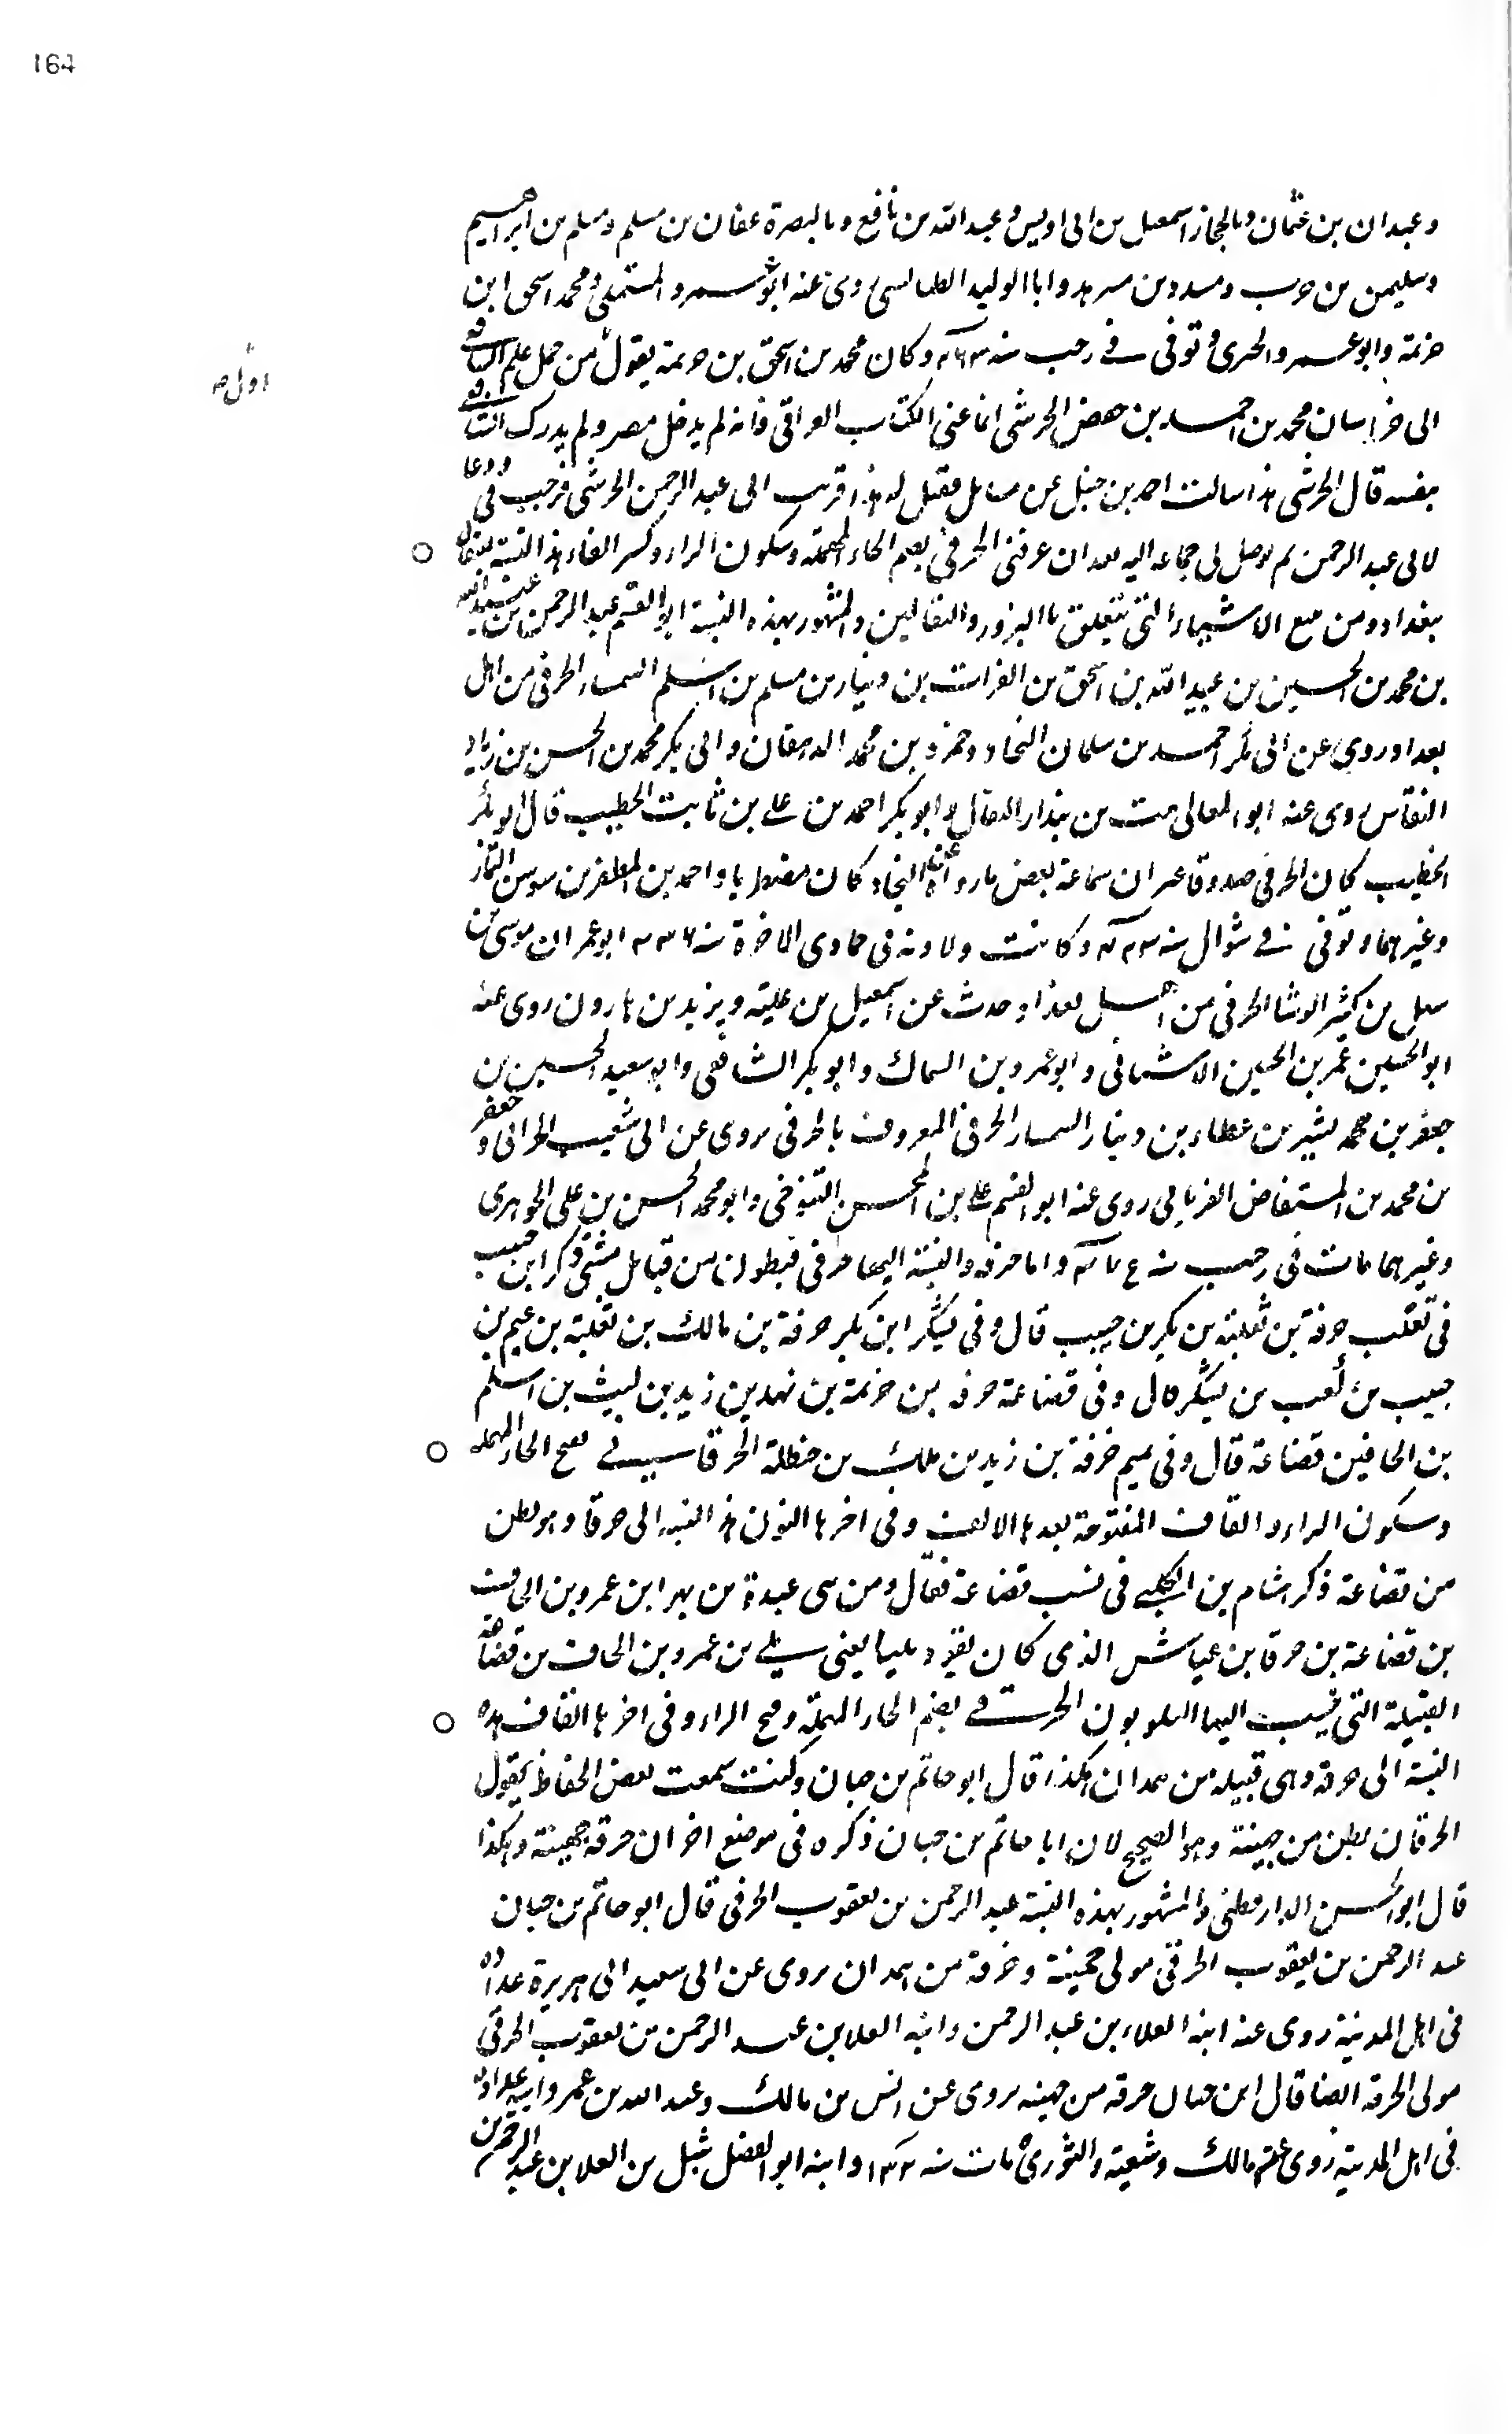 164
وعبدان بن عثمان وبالحجاز اسمعيل بن ابى اويس وعبد الله بن نافع وبالبصرة عفان بن مسلم ومسلم بن ابراهيم
وسليمن بن حرب ومسدد بن مسرهد وابا الوليد الطيالسى روى عنه ابو عمرو المستملى ومحمد اسحق ابن
خزيمة وابو عمرو الحيرى وتوفى فى رجب سنه ٢٦٣ وكان محمد بن اسحق بن خزيمة يقول من حمل علم الشافعى
اول
الى خراسان محمد بن احمد بن حفص الحرشى انما عنى الكتاب العراقى فانه لم يدخل مصر ولم يدرك الشافعى
بنفسه قال الحرشى هذا سالت احمد بن حنبل عن مسائل فقيل له هذا قريب ابى عبد الرحمن الحرشى فرحب فى ودعا
لابى عبد الرحمن لم يوصل لى جماعه اليه بعد ان عرفنى الحرفى بضم الحاء المهملة وسكون الراء وكسر الفاء هذا النسبة للبقال
ببغداد ومن يبيع الاشياء التى تتعلق بالبزور والبقالين والمشهور بهذه النسبة ابو القسم عبد الرحمن بن عبيد الله
بن محمد بن الحسين بن عبيد الله بن اسحق بن الفرات بن دينار بن مسلم بن اسلم السمسار الحرفى من اهل
بغداد وروى عن ابى بكر احمد بن سلمان النجاد وحمزه بن محمد الدهقان وابى بكر محمد بن الحسن بن زياد
النقاش روى عنه ابو المعالى ثابت بن بندار البقال وابو بكر احمد بن على بن ثابت الخطيب قال ابو بكر
الخطيب كان الحرفى صدوقا غير ان سماعه بعض ما رواه عن النجاد كان مضطربا واحمد بن المظفر بن سوسن التمار
وغيرهما وتوفى فى شوال سنه ٤٢٣ وكانت ولادته فى جمادى الاخرة سنه ٣٣٦ ابو عمران موسى بن
سهل بن كثير الوشا الحرفى من اهل بغداد حدث عن اسمعيل بن علية ويزيد بن هارون روى عنه
ابو الحسين عمر بن الحسين الاشنانى وابو عمرو بن السماك وابو بكر الشافعى وابو سعيد الحسين بن
جعفر بن محمد بشير بن عطاء بن دينار السمسار الحرفى المعروف بالحرفى يروى عن ابى شعيب الحرانى و جعفر
بن محمد بن المستفاض الفريابى روى عنه ابو القسم على بن المحسن التنوخى وابو محمد الحسن بن على الجوهرى
وغيرهما مات فى رجب سنه واما حرفه والنسبة اليها حرفى فبطون من قبائل شتى ذكر ابن حبيب
فى تغلب حرفة بن ثعلبة بن بكر بن حبيب قال وفى يشكر ابن بكر حرفة بن مالك بن ثعلبة بن غنم بن
حبيب بن كعب بن يشكر قال وفى قضاعة حرفه بن خزيمة بن نهد بن زيد بن ليث بن اسلم
بن الحاف بن قضاعة قال وفى تميم حرفة بن زيد بن مالك بن حنظلة الحرقانى بفتح الحاء المهملة
وسكون الراء والقاف المفتوحة بعدها الالف وفى اخرها النون هذا النسبه الى حرقا وهو بطن
من قضاعة ذكر هشام بن الكلبى فى نسب قضاعة فقال ومن بنى عبدة بن بهرا بن عمرو بن الحاف
بن قضاعة بن حرقا بن عياش الذى كان يقود بليا يعنى بلى بن عمرو بن الحاف بن قضاعة
القبيلة التى ينسب اليها البلويون الحرقى بضم الحاء المهملة وفتح الراء وفى اخرها القاف هذه
النسبة الى حرقة وهى قبيلة من همدان هكذا قال ابو حاتم بن حبان وكنت سمعت بعض الحفاظ يقول
الحرقان بطن من جهينة وهو الصحيح لان ابا حاتم بن حبان ذكره فى موضع اخر ان حرقة جهينة وهكذا
قال ابو الحسن الدار قطنى والمشهور بهذه النسبة عبد الرحمن بن يعقوب الحرقى قال ابو حاتم بن حبان
عبد الرحمن بن يعقوب الحرقى مولى جهينة وحرقة من همدان يروى عن ابى سعيد ابى هريرة عداده
فى اهل المدينة روى عنه ابنه العلاء بن عبد الرحمن وابنه العلا بن عبد الرحمن بن يعقوب الحرقى
مولى الحرقة ايضا قال ابن حبان حرقة من جهينه يروى عن انس بن مالك وعبد الله بن عمر وابيه عداده
فى اهل المدينة روى عنه مالك وشعبة والثورى مات سنه ١٣٢ وابنه ابو الفضل شبل بن العلا بن عبد الرحمن